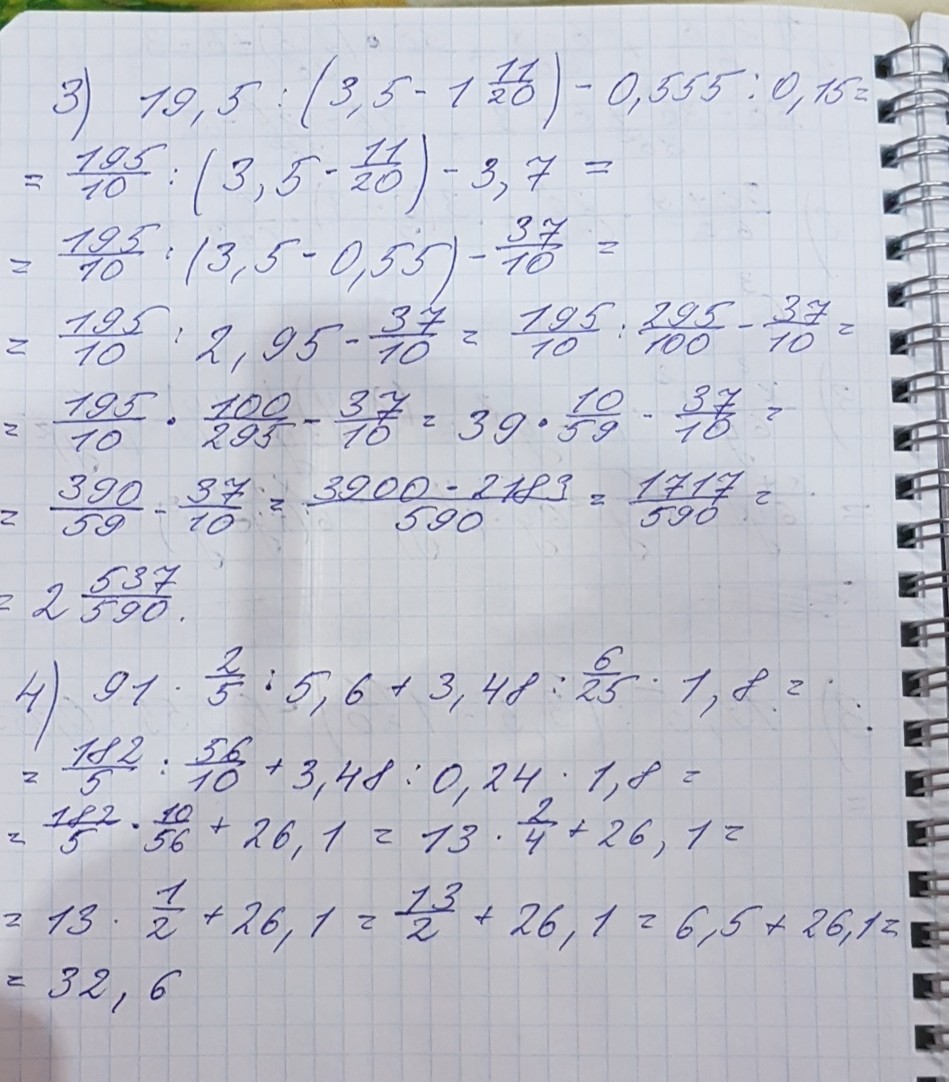 3) 19,5 : (3,5 - 1 11/20) - 0,555 : 0,15 =
= 195/10 : (3,5 - 11/20) - 3,7 =
= 195/10 : (3,5 - 0,55) - 37/10 =
= 195/10 : 2,95 - 37/10 = 195/10 : 295/100 - 37/10 =
= 195/10 · 100/295 - 37/10 = 39 · 10/59 - 37/10 =
= 390/59 - 37/10 = (3900 - 2183)/590 = 1717/590 =
= 2 537/590.
4) 91 · 2/5 : 5,6 + 3,48 : 6/25 · 1,8 =
= 182/5 : 56/10 + 3,48 : 0,24 · 1,8 =
= 182/5 · 10/56 + 26,1 = 13 · 2/4 + 26,1 =
= 13 · 1/2 + 26,1 = 13/2 + 26,1 = 6,5 + 26,1 =
= 32,6